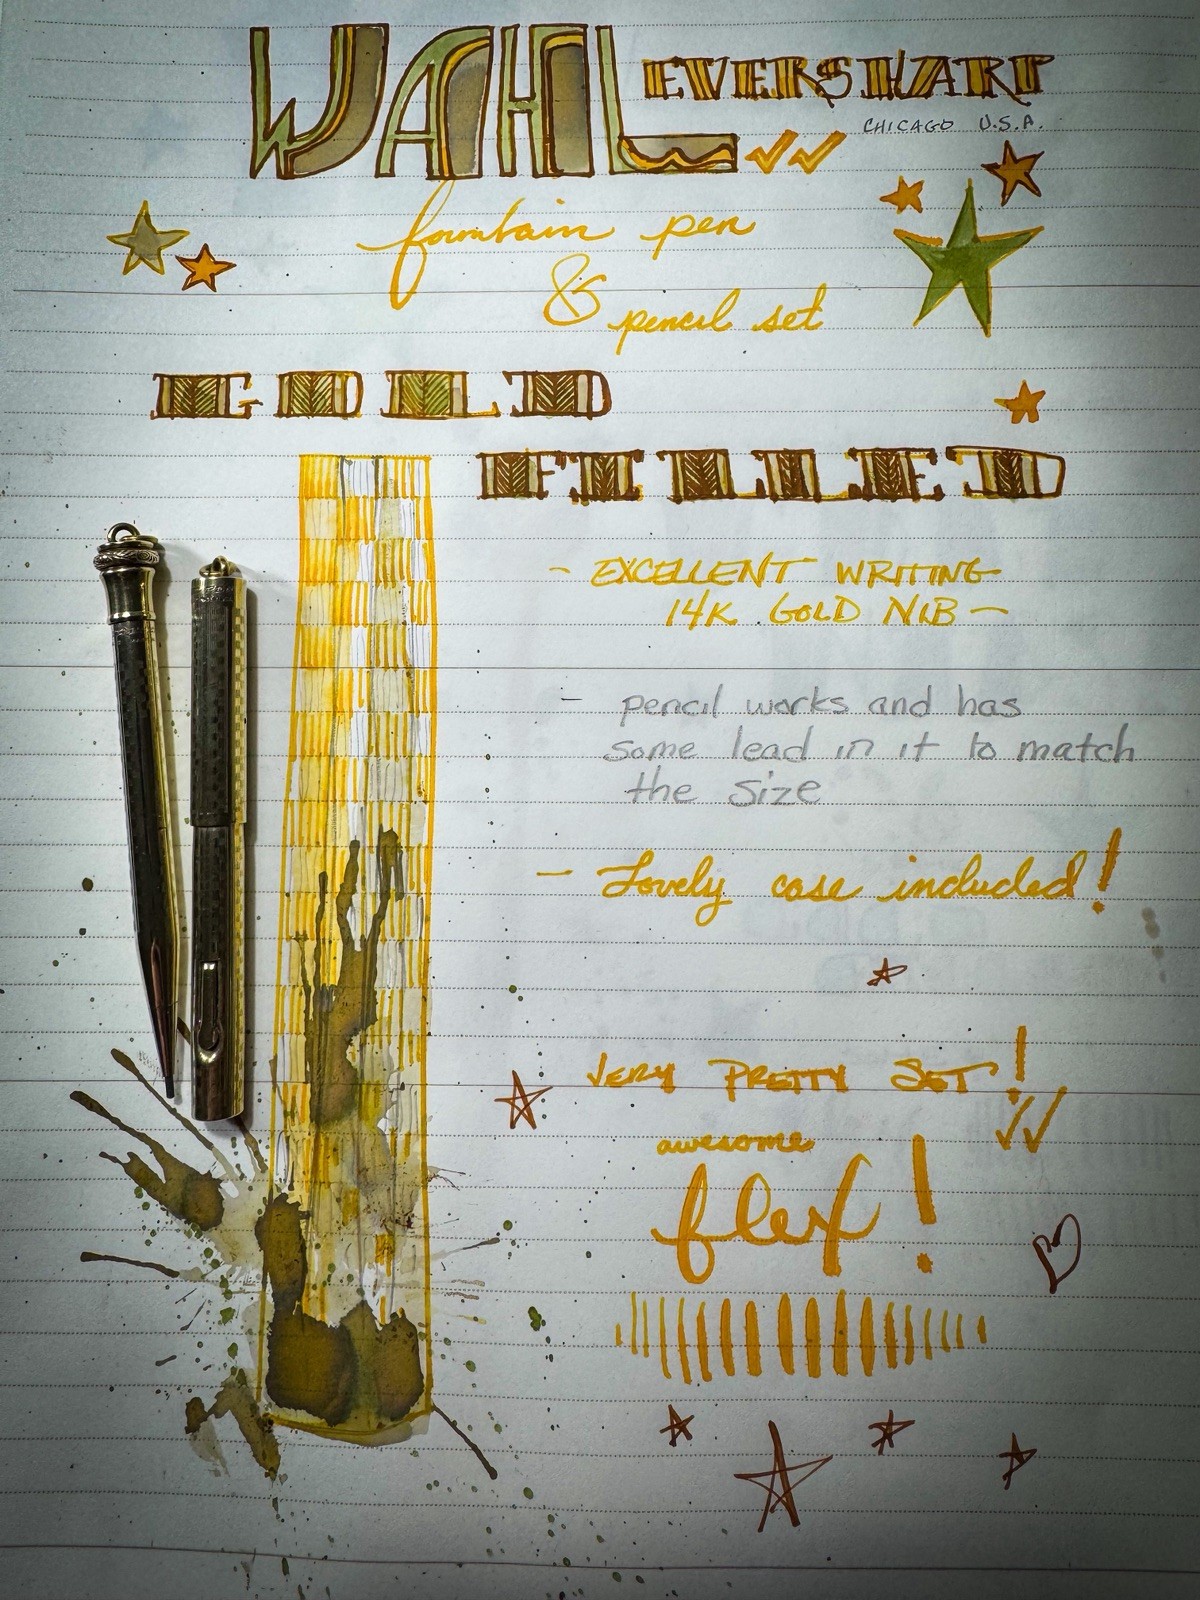 WAHL EVERSHARP
CHICAGO U.S.A.
fountain pen
& pencil set
GOLD
FILLED
- EXCELLENT WRITING
14K GOLD NIB -
- pencil works and has
some lead in it to match
the size
- Lovely case included!
VERY PRETTY SET!
awesome
flex!